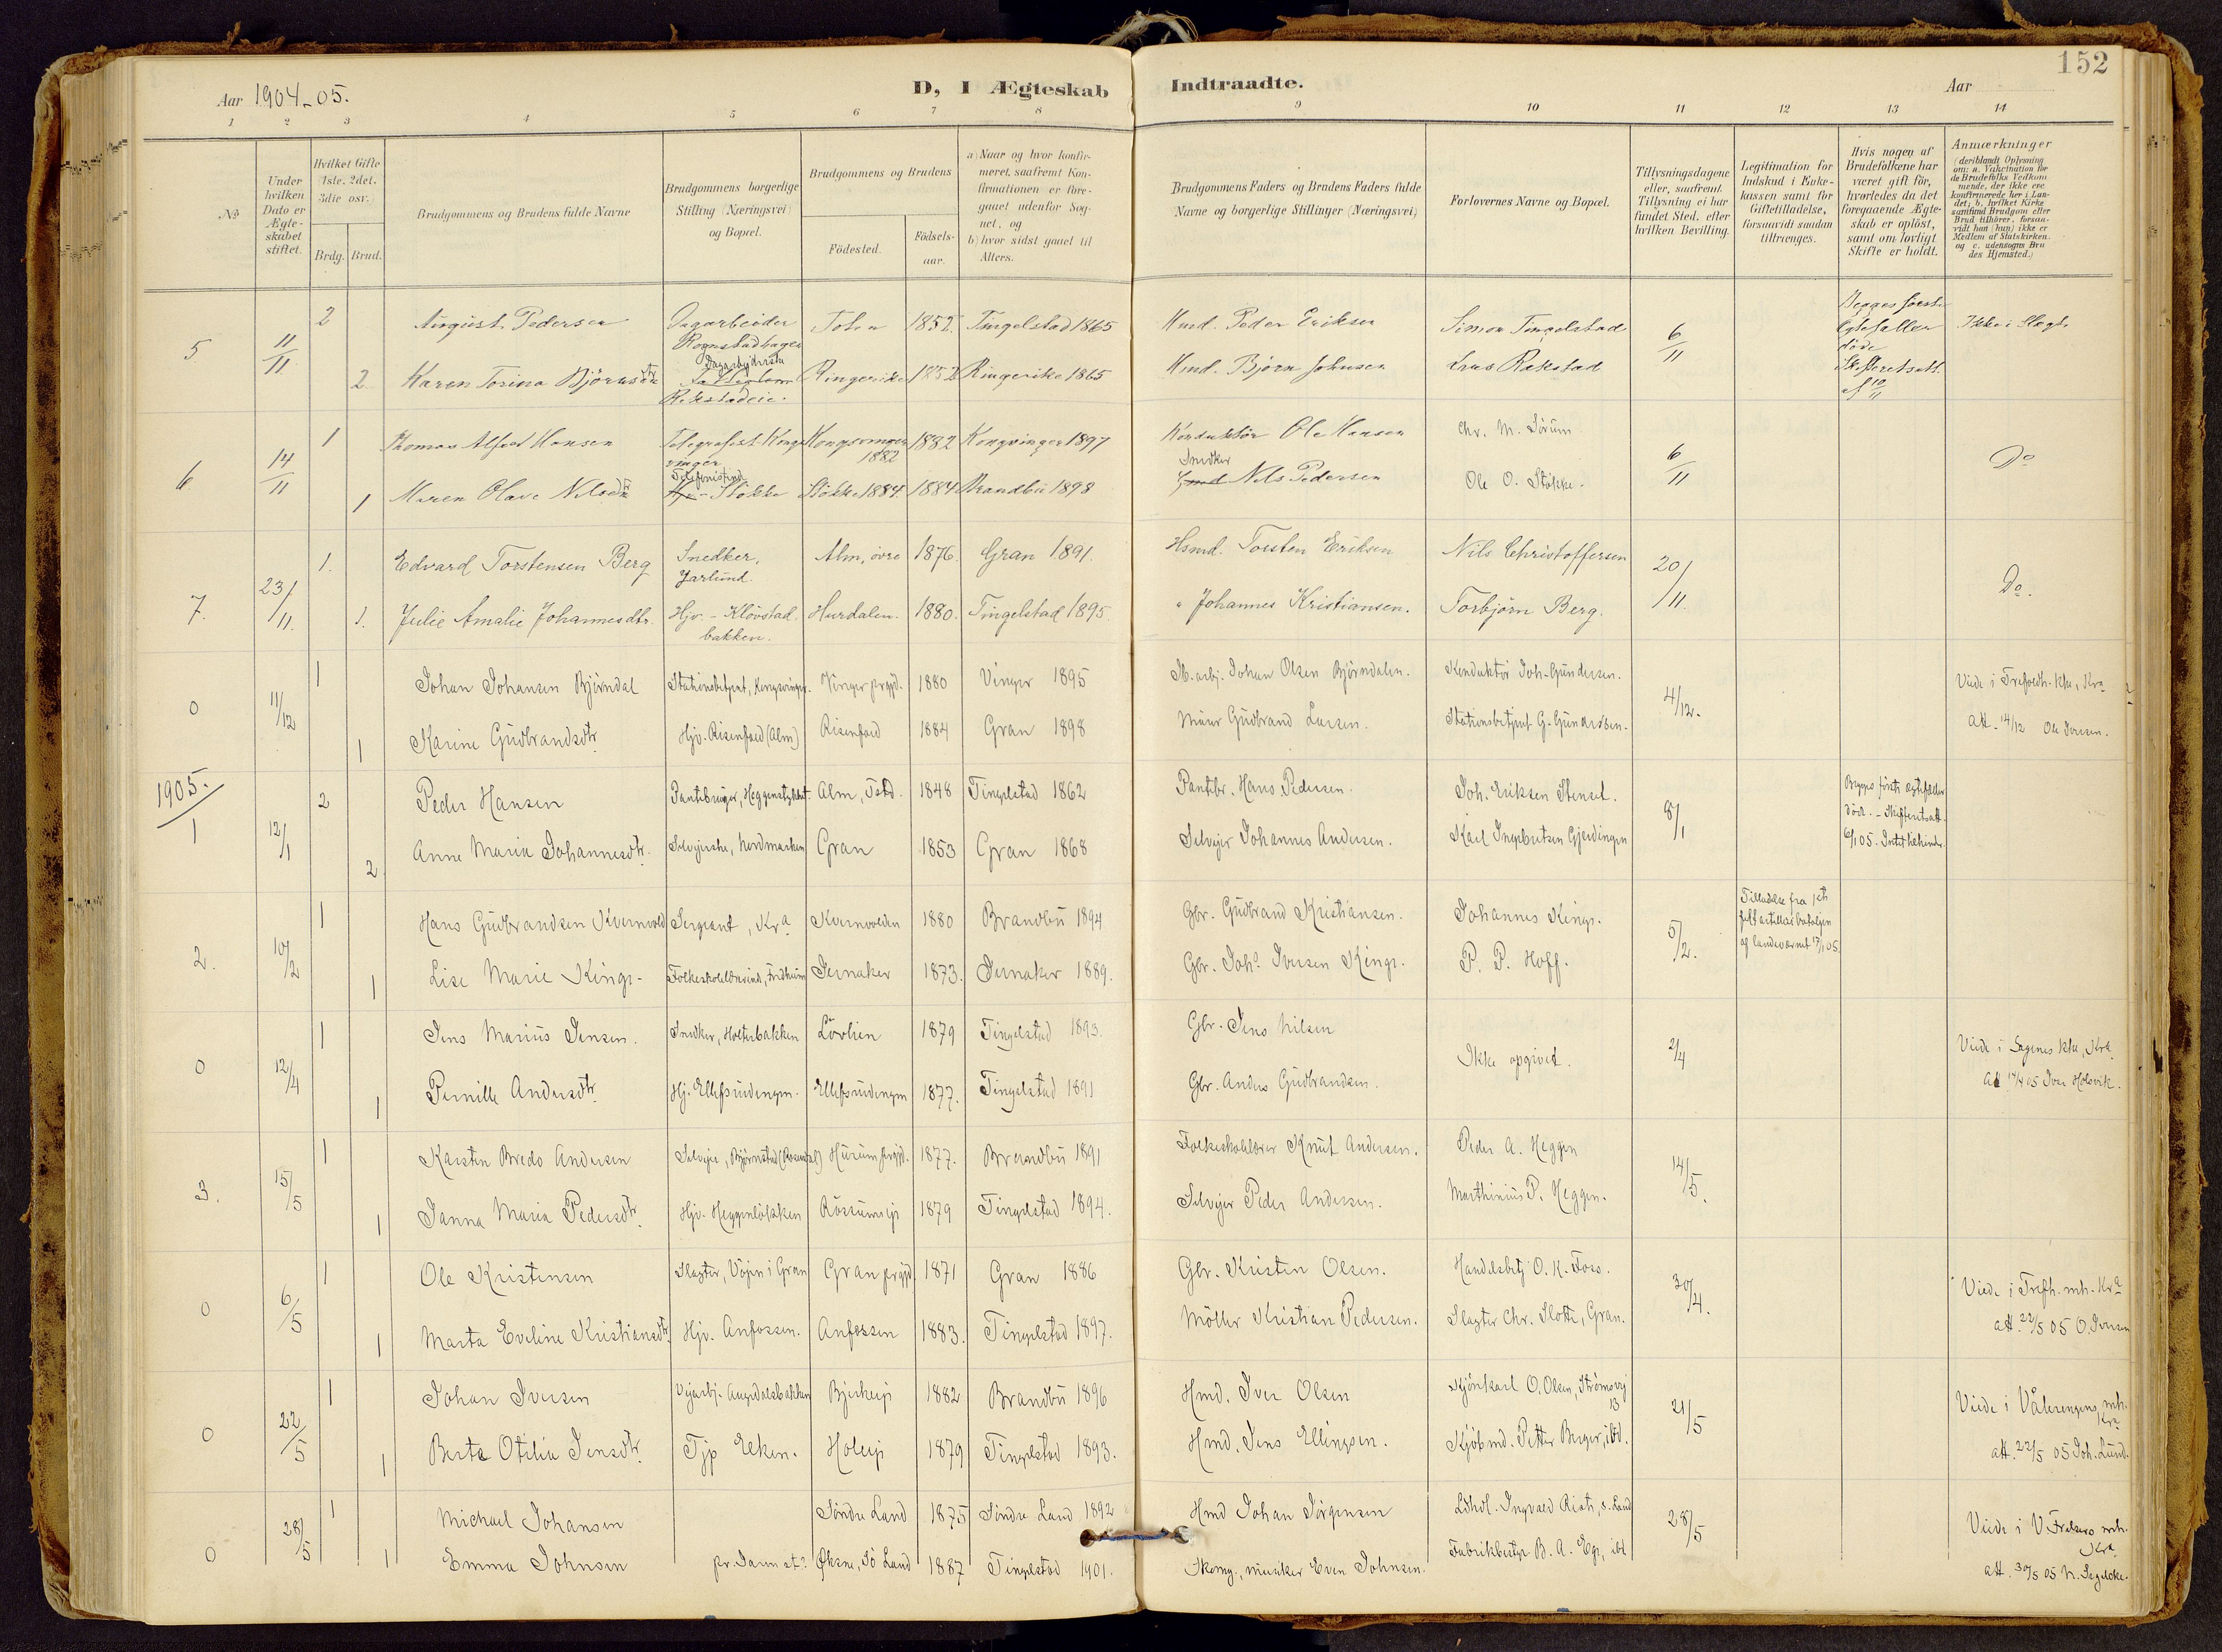 152
Aar 1904-05.
D, I Ægteskab Indtraadte.
Aar
1 2 3 4 5 6 7 8 9 10 11 12 13 14
No
Under hvilken Dato er Ægteskabet stiftet.
Hvilket Gifte (1ste, 2det, 3die osv.)
Brdg. Brud.
Brudgommens og Brudens fulde Navne
Brudgommens borgerlige Stilling (Næringsvei) og Bopæl.
Brudgommens og Brudens
Födested.
Födsels-aar.
a) Naar og hvor konfirmeret, saafremt Konfirmationen er foregaaet udenfor Sognet, og
b) hvor sidst gaaet til Alters.
Brudgommens Faders og Brudens Faders fulde Navne og borgerlige Stillinger (Næringsvei)
Forlovernes Navne og Bopæl.
Tillysningsdagene eller, saafremt Tillysning ei har fundet Sted, efter hvilken Bevilling.
Legitimation for Indskud i Enkekassen samt for Giftetilladelse, forsaavidt saadan tiltrænges.
Hvis nogen af Brudefolkene har været gift för, hvorledes da det foregaaende Ægteskab er oplöst, samt om lovligt Skifte er holdt.
Anmærkninger
5 11/11 2 August Pedersen Dagarbeider Toten 1852 Tingelstad 1865 Hmd. Peder Eriksen Simon Tingelstad 6/11 Begges første Egtefæller døde Ikke i Slægt
2 Karen Torina Björnsdtr Ringerike 1852 Ringerike 1865 Hmd. Björn Johnsen Lars Rækstad
6 14/11 1 Thomas Alfred Hansen Telegrafist Kongsvinger Kongsvinger 1882 1882 Kongsvinger 1897 Konduktör Ole Hansen Chr. M. Sörum 6/11 Do
1 Maren Olave Nilsdtr Telefonistinde Stökke Stökke 1884 1884 Brandbu 1898 Snedker Nils Pedersen Ole O. Stökke
7. 23/11. 1. Edvard Torstensen Berg Snedker, Jarlund. Alm, övre 1876. Gran 1891. Hsmd. Torsten Eriksen Nils Christoffersen 20/11. Do.
1. Julie Amalie Johannesdtr. Hjv. - Klövstadbakken. Hurdalen. 1880. Tingelstad 1895. " Johannes Kristiansen. Torbjörn Berg.
0 11/12 1 Johan Johansen Björndal Stationsbetjent, Kongsvinger. Vinger prgjd. 1880 Vinger 1895 Johan Olsen Björndalen. Konduktör Joh. Gundersen. 4/12. Viede i Trefoldh. kke, Kra
1 Karine Gudbrandsdtr. Hjv. (Alm) 1884 Gran 1898 Murer Gudbrand Larsen. Stationsbetjent G. Gundersen. att. 14/12 Ole Iversen.
1905.
1 12/1 2 Peder Hansen Alm 1848 Tingelstad 1862 Hans Pedersen. Joh. Eriksen 8/1 Begges første egtefæller död. - Skifteretsatt.
2 Anne Maria Johannesdtr. Selveierske, Nordmarken Gran 1853 Gran 1868 Selveier Johannes Andersen. Karl Ingebretsen Gjerdingen 6/1 05.
2. 10/2 1 Hans Gudbrandsen Kvernvold Sergeant, Kra Kvernvolden 1880 Brandbu 1894 Gbr. Gudbrand Kristiansen. Johannes Kinge. 5/2. Tilladelse fra
1 Lise Marie Kinge - Jevnaker 1873. Jevnaker 1889. Gbr. Johs. Iversen Kinge. P. P. Hoff.
0 12/4 1 Jens Marius Jensen. Snedker, Holterbakken Lövlien 1879 Tingelstad 1893. Gbr. Jens Nilsen Ikke opgivet. 2/4 Viede i Sagenes kke, Kra
1 Pernille Andersdtr. Hj. Ellefsrudengen. Ellefsrudengen 1877. Tingelstad 1891 Gbr. Anders Gudbrandsen. att. 14/4 05 Iver Holsvik.
3. 15/5 1 Karsten Bredo Andersen Selveier, Björnstad (Rosendal) Hurum prgjd. 1877. Brandbu 1891 Folkeskolelærer Knut Andersen. Peder A. Heggen 14/5.
1 Janna Maria Pedersdtr. Hjv. Heggenlökken 1879 Tingelstad 1894. Selveier Peder Andersen. Marthinius P. Heggen.
0 6/5 1 Ole Kristensen Slagter, Vöien i Gran Gran prgjd. 1871 Gran 1886 Gbr. Kristen Olsen. Handelsbetj O. K. Foss. 30/4. Viede i Trefh. mh. Kra
1 Marta Eveline Kristiansdtr. Hjv. Anfossen. Anfossen 1883. Tingelstad 1897. Möller Kristian Pedersen. Slagter Chr. Slotte, Gran. att. 22/5 05 O. Iversen
0 22/5 1 Johan Iversen Bjerkeie 1882 Brandbu 1896 Hmd. Iver Olsen Kjörekarl O. Olsen, Strömsvej 13 21/5 Viede i Vålerengens mh. Kra
1 Berte Otilie Jensdtr. Tjp Elken. Holeie 1879 Tingelstad 1893. Hmd. Jens Ellingsen. Kjöbmd. Petter Berger, ibd. att. 22/5 05 Joh. Lund.
0 28/5 1 Michael Johansen Söndre Land 1875 Söndre Land 1892 Hmd Johan Jörgensen 28/5 Viede i V. Frelsers mh. Kra
1 Emma Johnsen Sö Land 1887 Tingelstad 1901. musiker Even Johnsen. Fabrikbestyr B. A. Ege, ibd att. 30/5 05